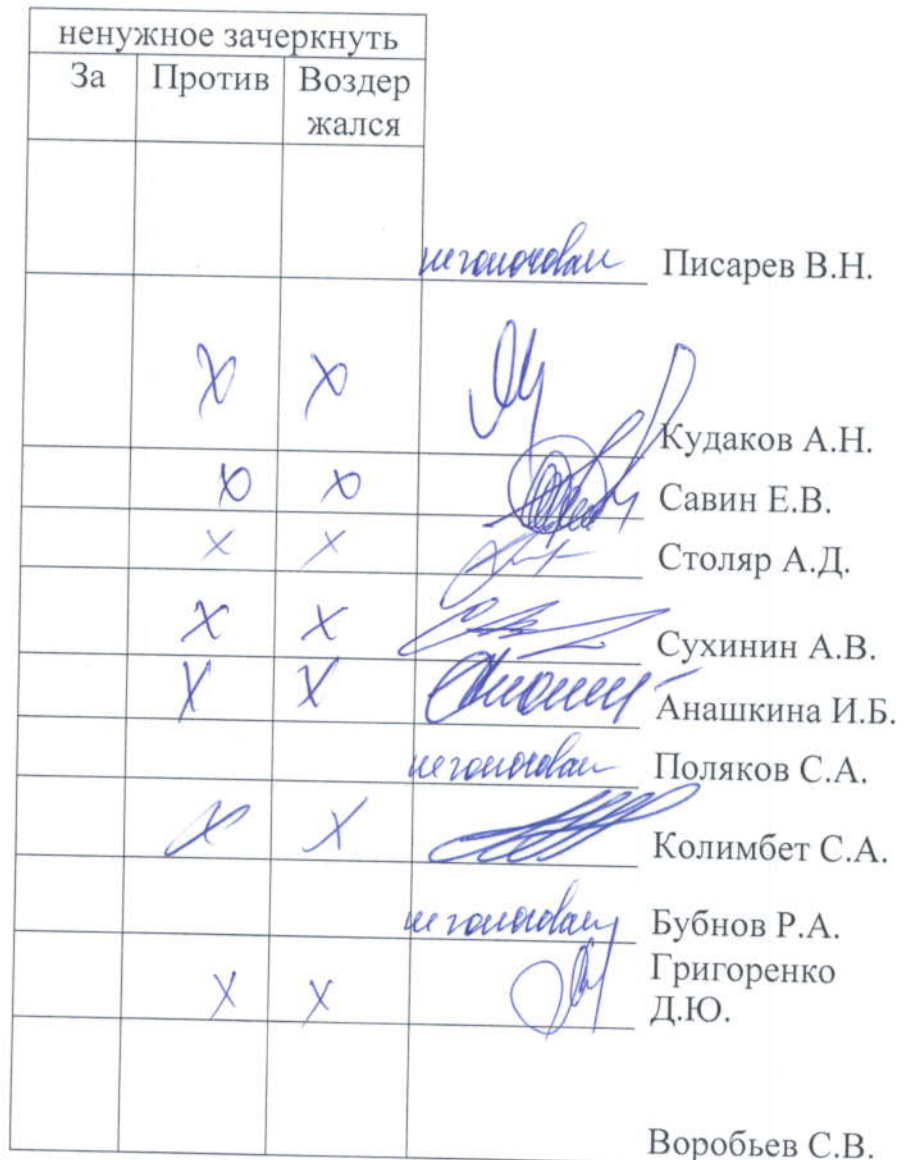 ненужное зачеркнуть
За Против Воздер
жался
не голосовал Писарев В.Н.
X X Кудаков А.Н.
X X Савин Е.В.
X X Столяр А.Д.
X X Сухинин А.В.
X X Анашкина И.Б.
не голосовал Поляков С.А.
X X Колимбет С.А.
не голосовал Бубнов Р.А.
Григоренко
X X Д.Ю.
Воробьев С.В.